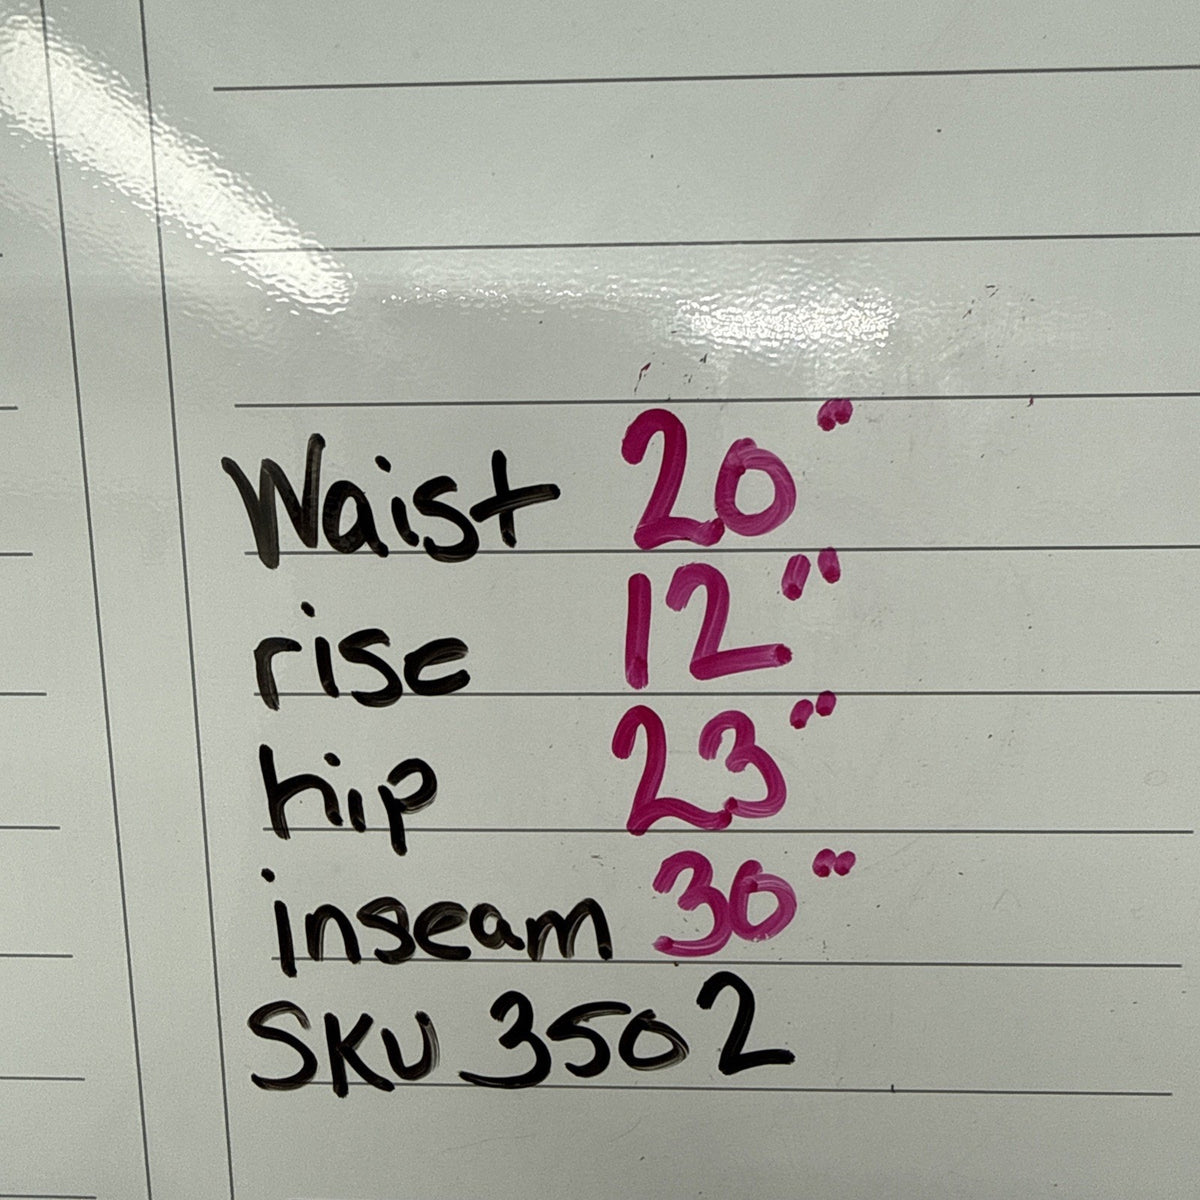 Waist 20"
rise 12"
hip 23"
inseam 30"
SKU 3502